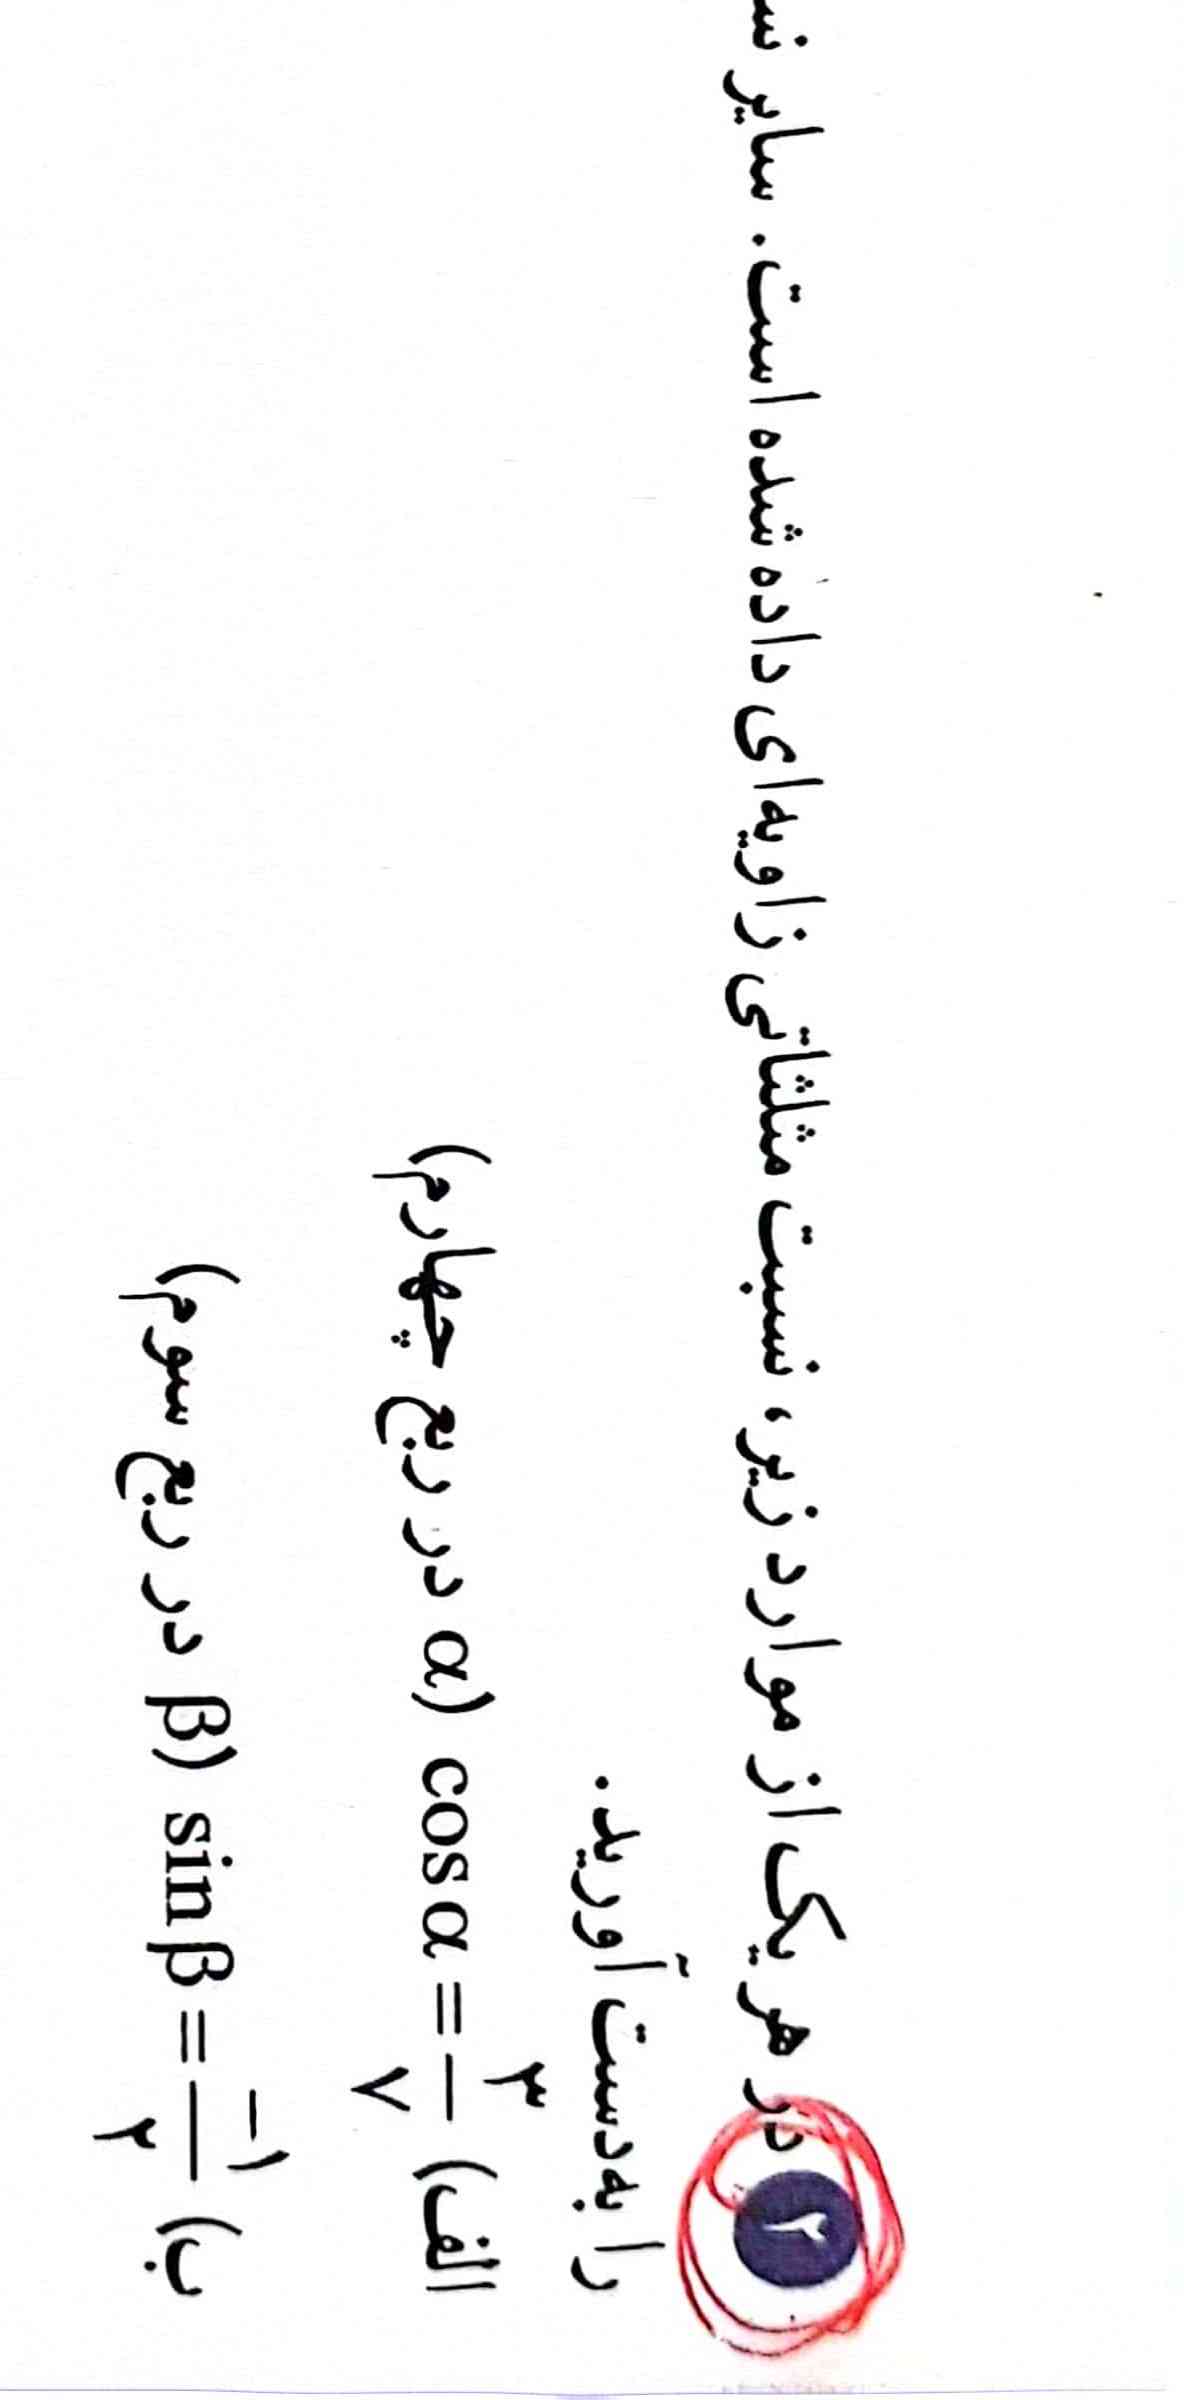 ۲ در هر یک از موارد زیر، نسبت مثلثاتی زاویه‌ای داده شده است. سایر
را به‌دست آورید.
الف) cos α = ۳/۷ (α در ربع چهارم)
ب) sin β = -۱/۲ (β در ربع سوم)